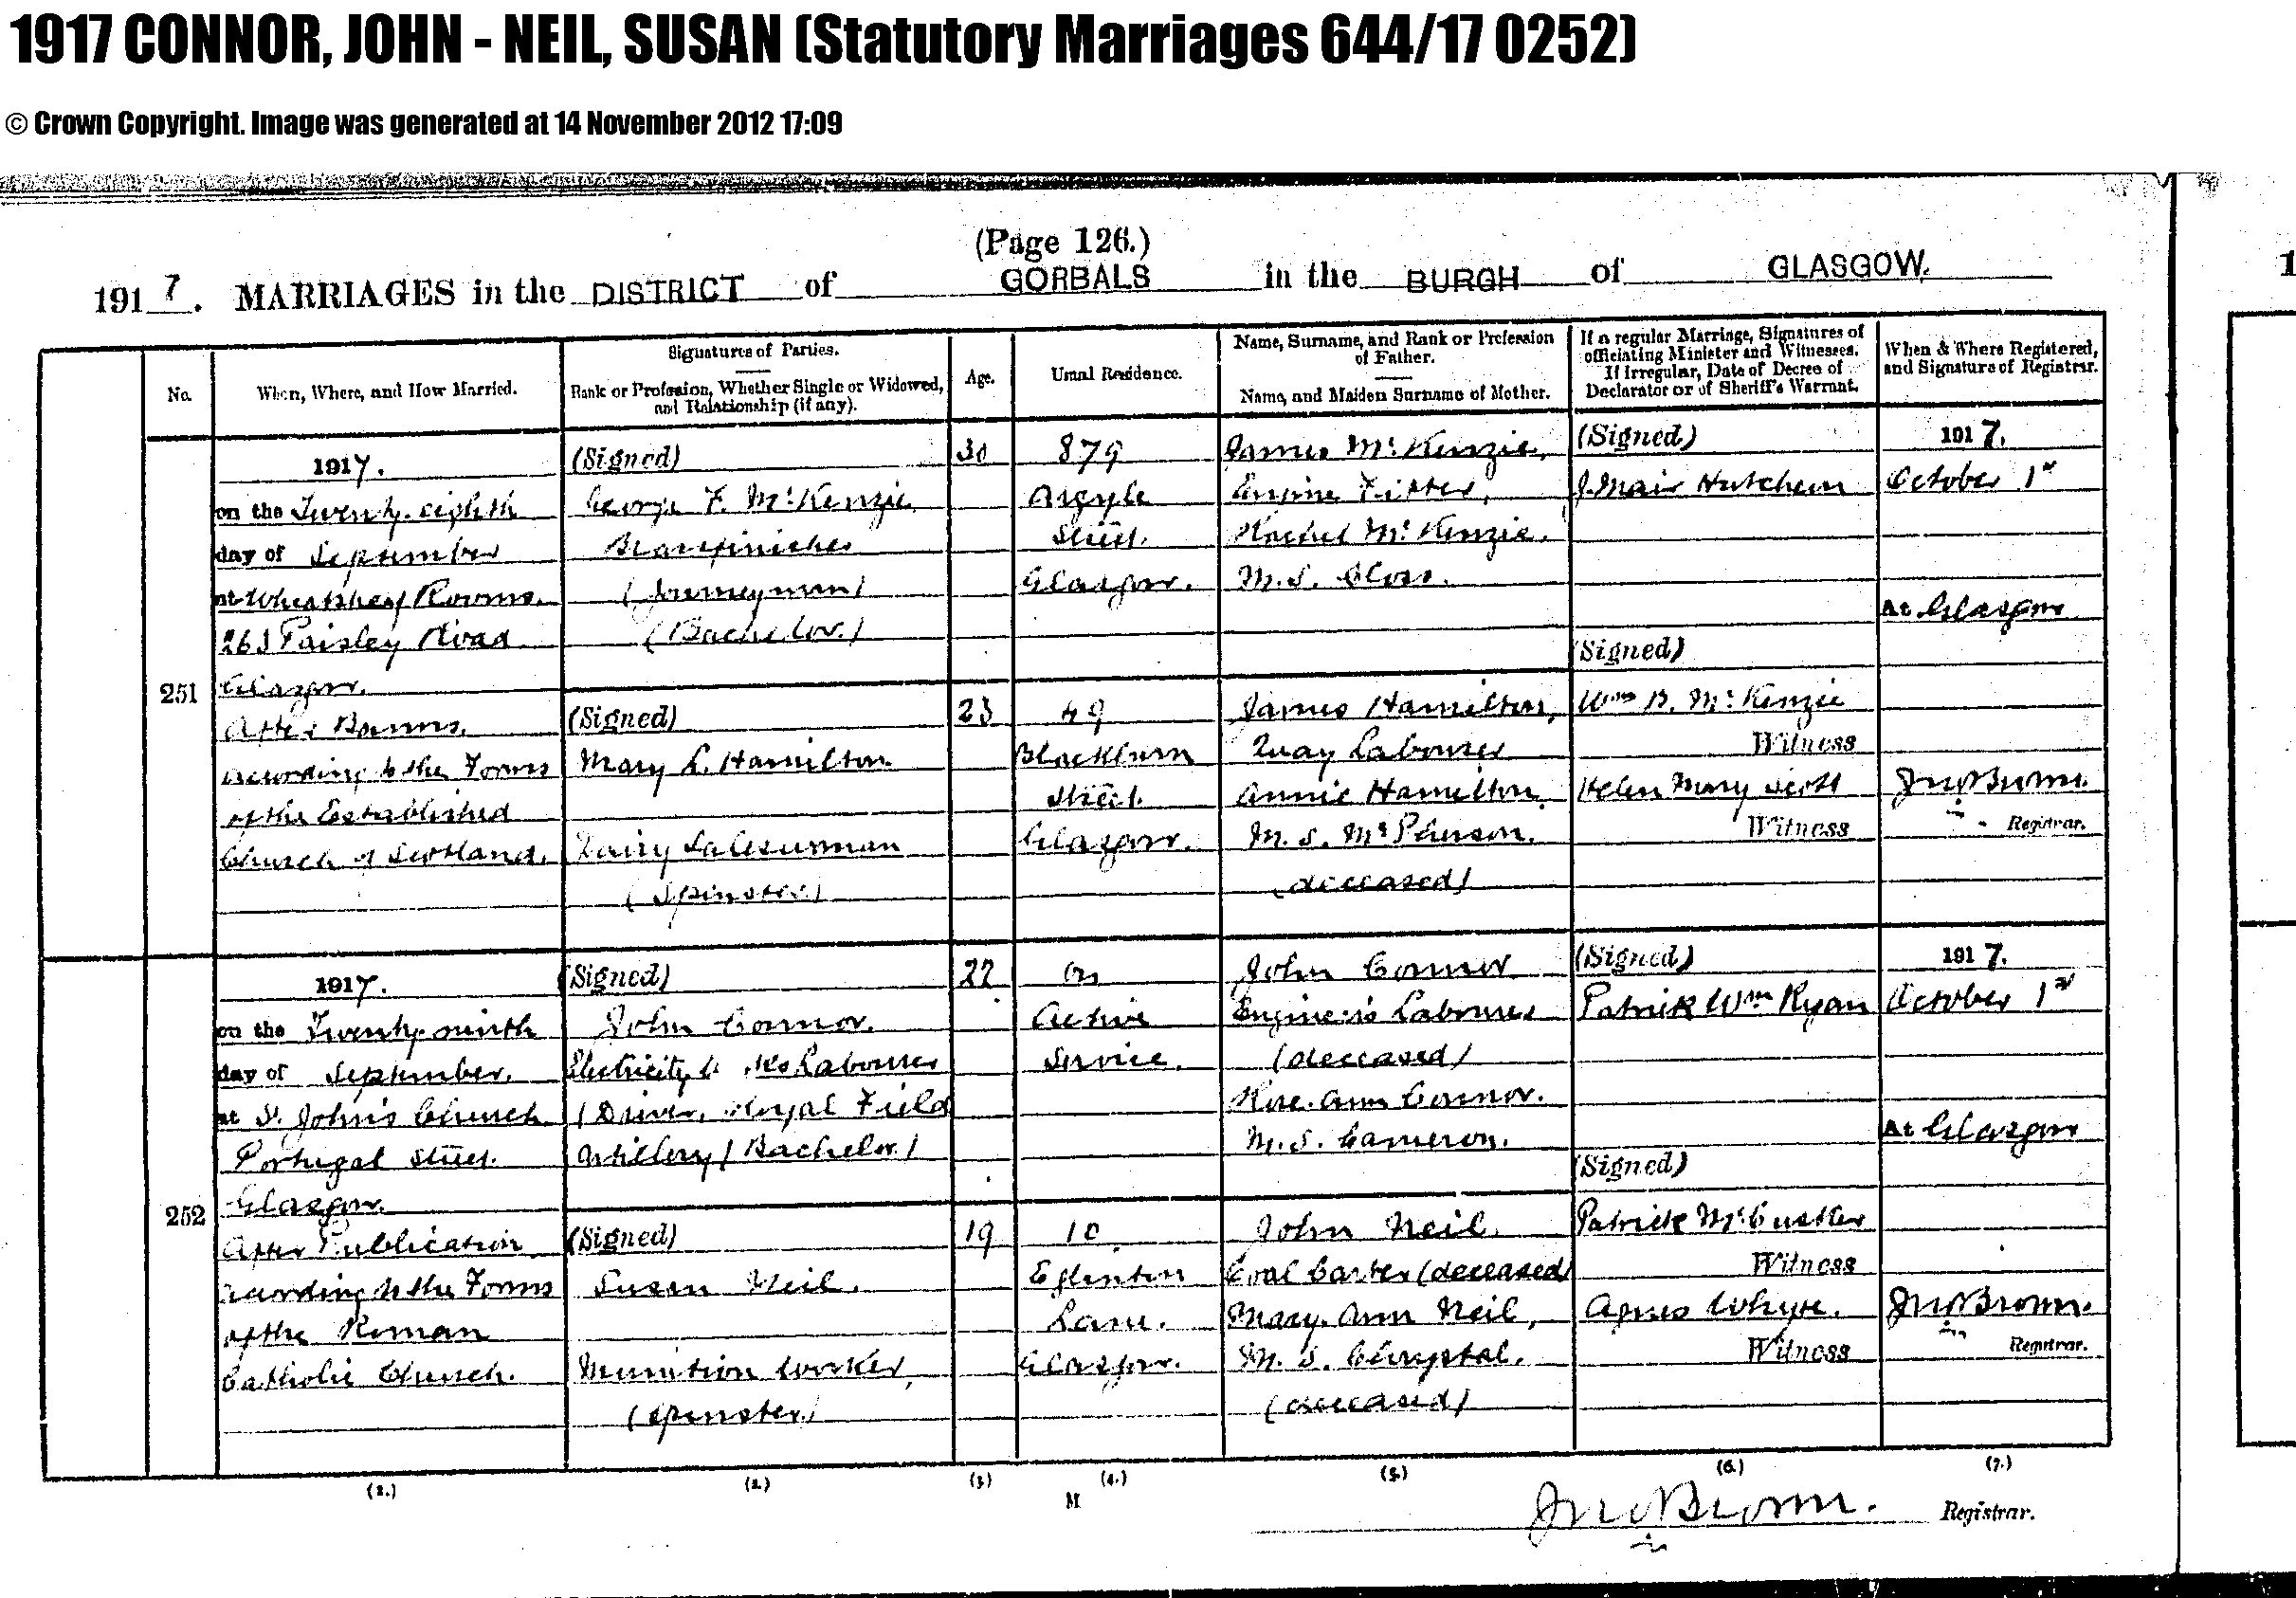 1917 CONNOR, JOHN - NEIL, SUSAN (Statutory Marriages 644/17 0252)
© Crown Copyright. Image was generated at 14 November 2012 17:09
(Page 126.)
1917. MARRIAGES in the DISTRICT of GORBALS in the BURGH of GLASGOW.
1
No.
When, Where, and How Married.
Signatures of Parties.
Rank or Profession, Whether Single or Widowed,
and Relationship (if any).
Age.
Usual Residence.
Name, Surname, and Rank or Profession
of Father.
Name, and Maiden Surname of Mother.
If a regular Marriage, Signatures of
officiating Minister and Witnesses.
If Irregular, Date of Decree of
Declarator or of Sheriff's Warrant.
When & Where Registered,
and Signature of Registrar.
251
1917.
on the Twenty-eighth
day of September
at Wheatsheaf Rooms.
263 Paisley Road
Glasgow.
After Banns.
according to the Forms
of the Established
Church of Scotland.
(Signed)
George F. McKenzie
(Journeyman)
(Bachelor.)
(Signed)
Mary L. Hamilton
Dairy Saleswoman
(Spinster)
30
23
879
Argyle
Street.
Glasgow.
49
Blackburn
Street.
Glasgow.
James McKenzie,
Engine Fitter,
Rachel McKenzie.
M.S. Closs.
James Hamilton,
Quay Labourer
Annie Hamilton,
M.S. McPherson.
(deceased)
(Signed)
J. Mair Hutcheon
(Signed)
Wm B. McKenzie
Witness
Helen Mary Scott
Witness
1917.
October 1st
At Glasgow
Jno Brown.
Registrar.
252
1917.
on the Twenty-ninth
day of September.
at St. John's Church
Portugal Street.
Glasgow.
After Publication
according to the Forms
of the Roman
Catholic Church.
(Signed)
John Connor.
Electricity Labourer
(Driver, Royal Field
Artillery) (Bachelor.)
(Signed)
Susan Neil.
Munition Worker,
(Spinster.)
22
19
On
Active
Service.
10
Eglinton
Lane.
Glasgow.
John Connor
Engineer's Labourer
(deceased)
Rose Ann Connor.
M.S. Cameron.
John Neil.
Coal Carter (deceased)
Mary Ann Neil,
M.S. Chrystal.
(deceased)
(Signed)
Patrick Wm Ryan
(Signed)
Patrick McCusker
Witness
Agnes Whyte.
Witness
1917.
October 1st
At Glasgow
Jno Brown.
Registrar.
(1.) (2.) (3.) (4.) (5.) (6.) (7.)
M
Jno Brown. Registrar.